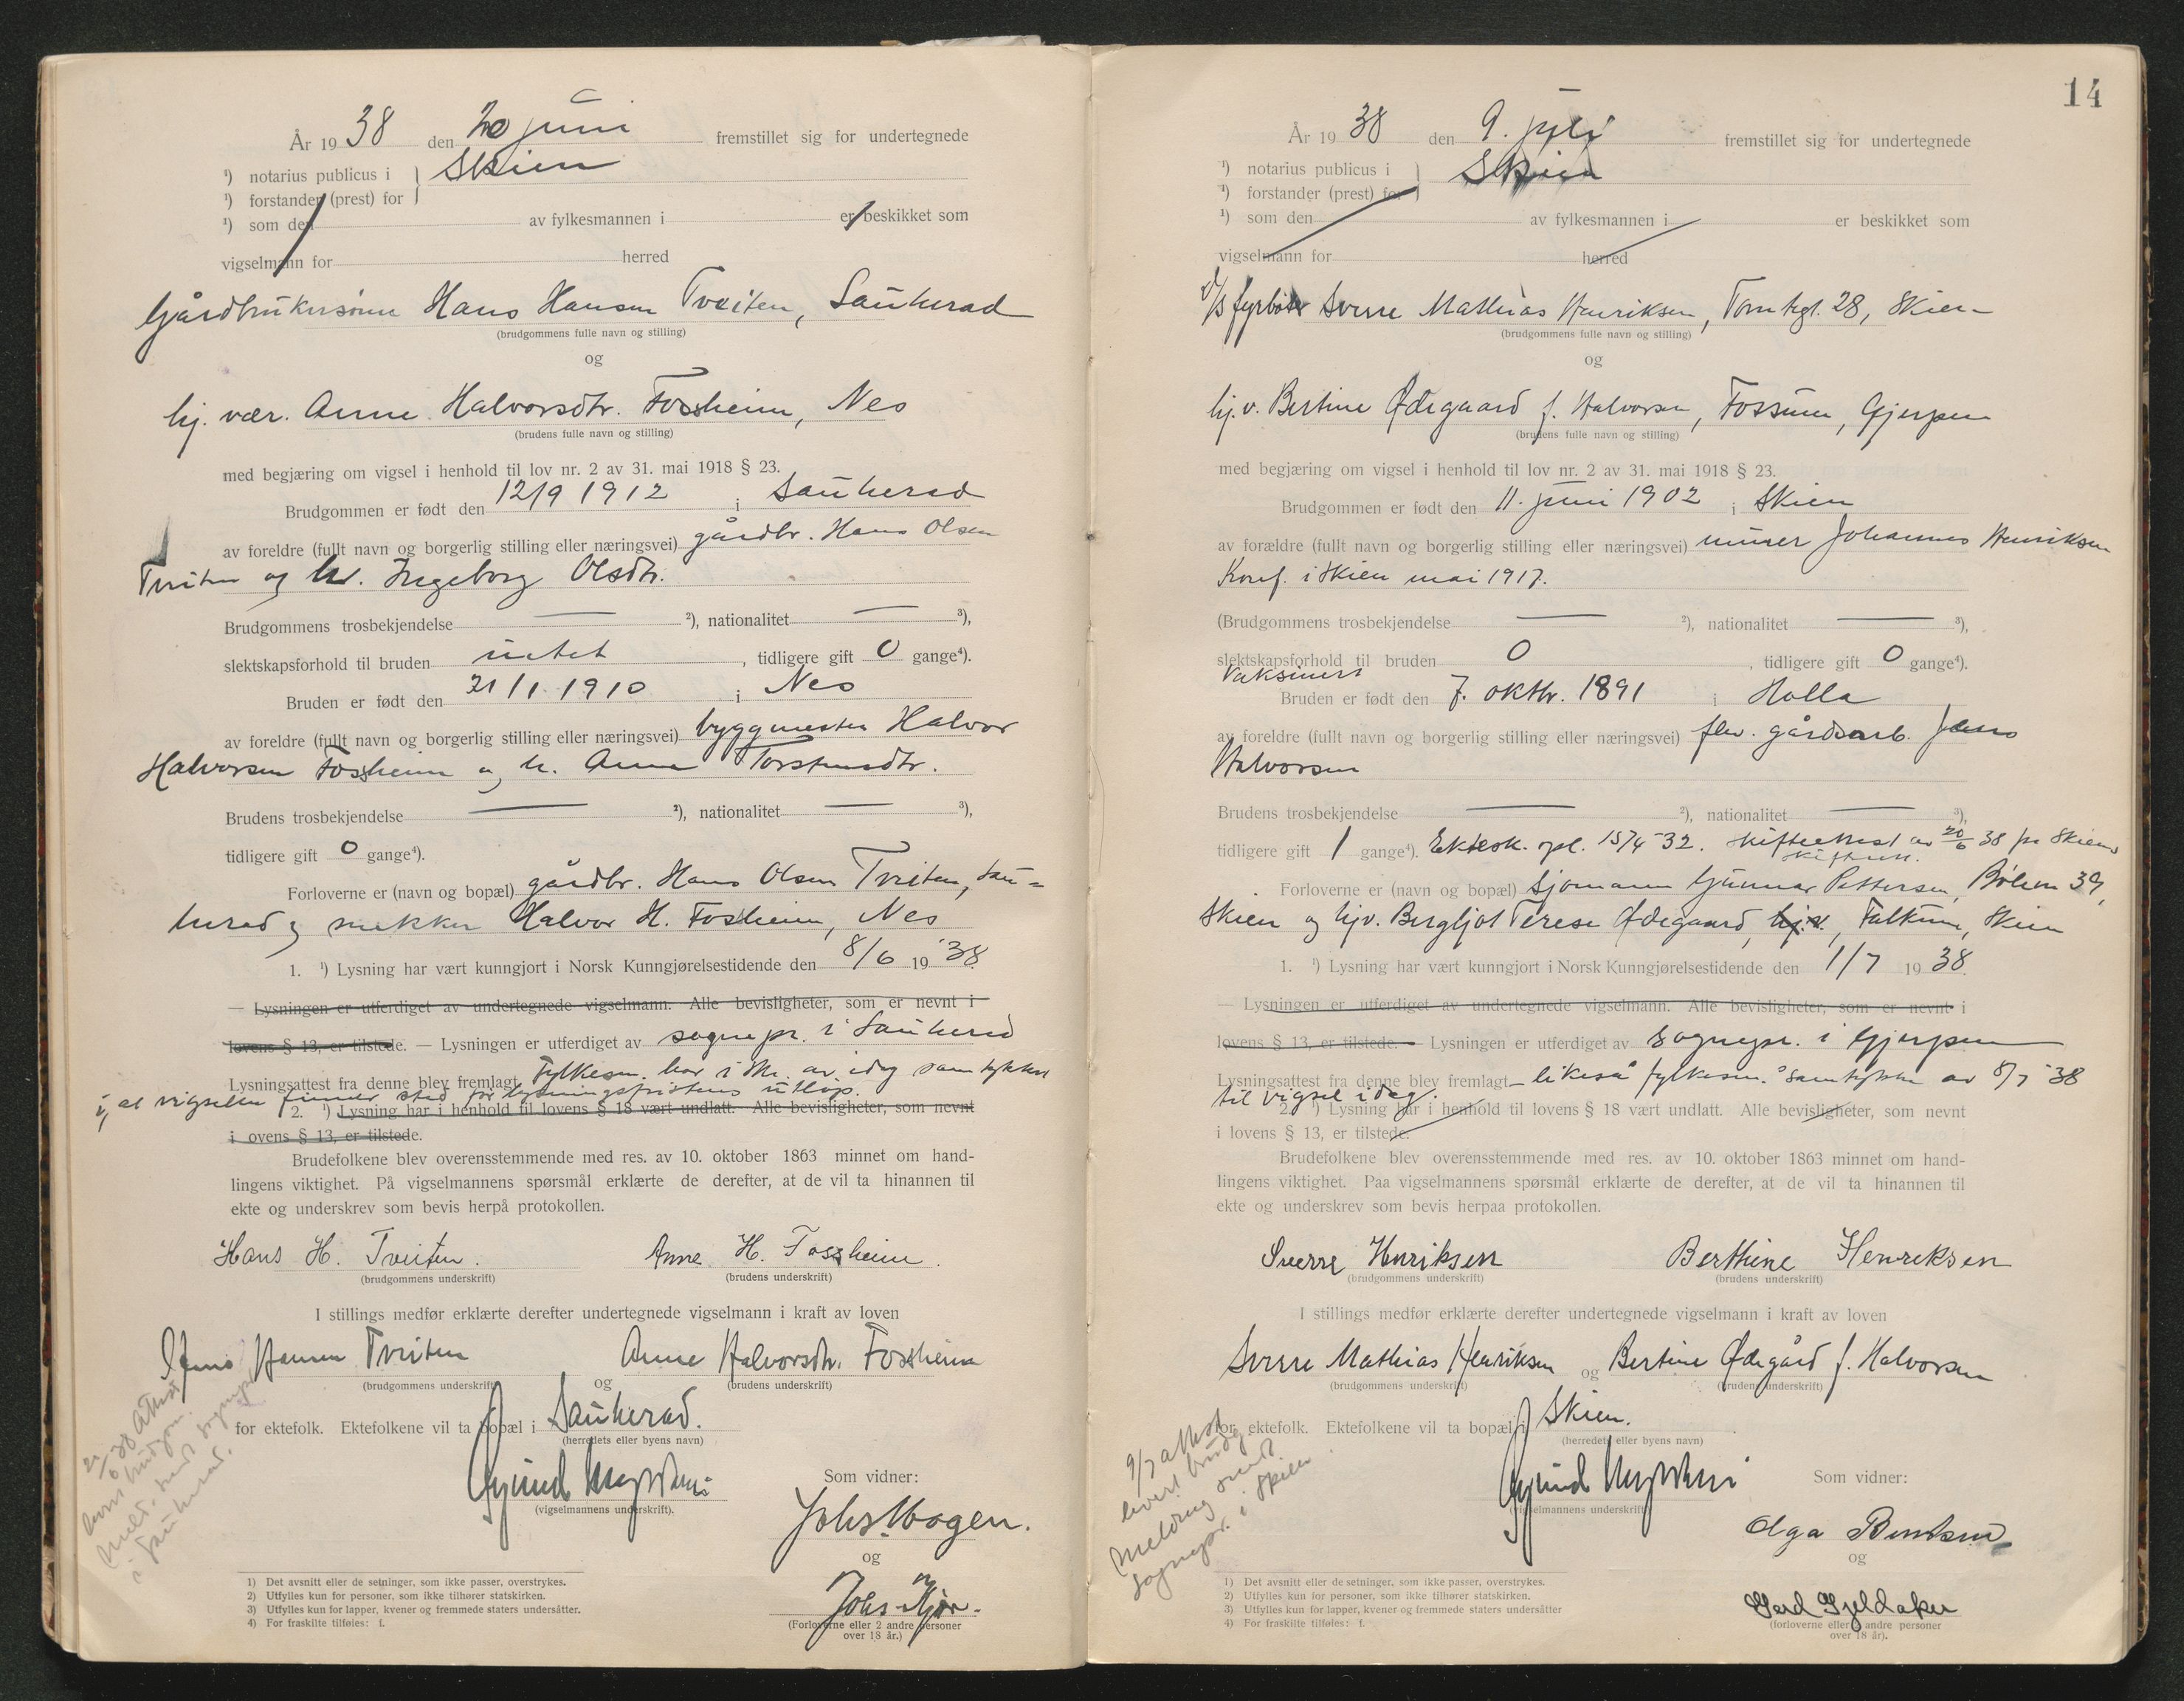 År 1938 den 20 juni fremstillet sig for undertegnede
¹) notarius publicus i Skien
¹) forstander (prest) for
¹) som den av fylkesmannen i er beskikket som
vigselmann for herred
Gårdbrukersønn Hans Hansen Tveiten, Sauherad
(brudgommens fulle navn og stilling)
og
hj. vær. Anne Halvorsdtr. Fossheim, Nes
(brudens fulle navn og stilling)
med begjæring om vigsel i henhold til lov nr. 2 av 31. mai 1918 § 23.
Brudgommen er født den 12/9 1912 i Sauherad
av foreldre (fullt navn og borgerlig stilling eller næringsvei) gårdbr. Hans Olsen
Tveiten og h. Ingeborg Olsdtr.
Brudgommens trosbekjendelse — ²), nationalitet — ³),
slektskapsforhold til bruden intet, tidligere gift 0 gange⁴).
Bruden er født den 21/1 1910 i Nes
av foreldre (fullt navn og borgerlig stilling eller næringsvei) byggmester Halvor
Halvorsen Fossheim og h. Anne Torstensdtr.
Brudens trosbekjendelse — ²), nationalitet — ³),
tidligere gift 0 gange⁴).
Forloverne er (navn og bopæl) gårdbr. Hans Olsen Tveiten, Sau-
herad og snekker Halvor H. Fossheim, Nes
1. ¹) Lysning har vært kunngjort i Norsk Kunngjørelsestidende den 8/6 1938.
— Lysningen er utferdiget av undertegnede vigselmann. Alle bevisligheter, som er nevnt i
lovens § 13, er tilstede. — Lysningen er utferdiget av sognepr. i Sauherad
Lysningsattest fra denne blev fremlagt. Fylkesm. har i skr. av idag samtykket
i, at vigselen finner sted før lysningsfristens utløp.
2. ¹) Lysning har i henhold til lovens § 18 vært undlatt. Alle bevisligheter, som nevnt
i lovens § 13, er tilstede.
Brudefolkene blev overensstemmende med res. av 10. oktober 1863 minnet om hand-
lingens viktighet. På vigselmannens spørsmål erklærte de derefter, at de vil ta hinannen til
ekte og underskrev som bevis herpå protokollen.
Hans H. Tveiten. Anne H. Fossheim.
(brudgommens underskrift) (brudens underskrift)
I stillings medfør erklærte derefter undertegnede vigselmann i kraft av loven
Hans Hansen Tveiten og Anne Halvorsdtr. Fossheim
(brudgommens underskrift) (brudens underskrift)
for ektefolk. Ektefolkene vil ta bopæl i Sauherad.
(herredets eller byens navn)
(vigselmannens underskrift).
Som vidner:
Johs. Wogen.
og
Johs
(Forloverne eller 2 andre personer
over 18 år.)
21/6 38 attest
brudgom.
Meld. sendt sognepr.
i Sauherad.
1) Det avsnitt eller de setninger, som ikke passer, overstrykes.
2) Utfylles kun for personer, som ikke tilhører statskirken.
3) Utfylles kun for lapper, kvener og fremmede staters undersåtter.
4) For fraskilte tilføies: f.
14
År 1938 den 9. juli fremstillet sig for undertegnede
¹) notarius publicus i Skien
¹) forstander (prest) for
¹) som den av fylkesmannen i er beskikket som
vigselmann for herred
fyrbøter Sverre Mathias Henriksen, Tomtegt. 28, Skien
(brudgommens fulle navn og stilling)
og
hj. v. Bertine Ødegaard f. Halvorsen, Fossum, Gjerpen
(brudens fulle navn og stilling)
med begjæring om vigsel i henhold til lov nr. 2 av 31. mai 1918 § 23.
Brudgommen er født den 11. juni 1902 i Skien
av forældre (fullt navn og borgerlig stilling eller næringsvei) murer Johannes Henriksen
Konf. i Skien mai 1917.
(Brudgommens trosbekjendelse — ²), nationalitet — ³),
slektskapsforhold til bruden 0, tidligere gift 0 gange⁴).
Vaksinert
Bruden er født den 7. oktbr. 1891 i Holla
av foreldre (fullt navn og borgerlig stilling eller næringsvei) gårdsarb. Jens
Halvorsen
Brudens trosbekjendelse — ²), nationalitet — ³),
tidligere gift 1 gange⁴). Ektesk. opl. 15/4 32. Skifteattest av 20/6 38 fra Skiens
skifterett.
Forloverne er (navn og bopæl) Sjømann Gunnar Pettersen, Bølem 39,
Skien og hjv. Bergljot Terese Ødegaard, hj.v., Falkum, Skien
1. ¹) Lysning har vært kunngjort i Norsk Kunngjørelsestidende den 1/7 1938.
— Lysningen er utferdiget av undertegnede vigselmann. Alle bevisligheter, som er nevnt i
lovens § 13, er tilstede. — Lysningen er utferdiget av sognepr. i Gjerpen
Lysningsattest fra denne blev fremlagt — likeså fylkesm.s samtykke av 8/7 38
til vigsel idag.
2. ¹) Lysning har i henhold til lovens § 18 vært undlatt. Alle bevisligheter, som nevnt
i lovens § 13, er tilstede.
Brudefolkene blev overensstemmende med res. av 10. oktober 1863 minnet om hand-
lingens viktighet. Paa vigselmannens spørsmål erklærte de derefter, at de vil ta hinannen til
ekte og underskrev som bevis herpaa protokollen.
Sverre Henriksen Berthine Henreksen
(brudgommens underskrift) (brudens underskrift)
I stillings medfør erklærte derefter undertegnede vigselmann i kraft av loven
Sverre Mathias Henriksen og Bertine Ødegård f. Halvorsen
(brudgommens underskrift) (brudens underskrift)
for ektefolk. Ektefolkene vil ta bopæl i Skien.
(herredets eller byens navn)
(vigselmannens underskrift)
Som vidner:
Olga Berntsen
og
Gerd Gjeldaker
(forloverne eller 2 andre personer
over 18 år).
9/7 attest
levert brudg.
Melding sendt
sognepr. i Skien
1) Det avsnitt eller de setninger, som ikke passer, overstrykes.
2) Utfylles kun for personer, som ikke tilhører statskirken.
3) Utfylles kun for lapper, kvener og fremmede staters undersåtter
4) For fraskilte tilføies: f.